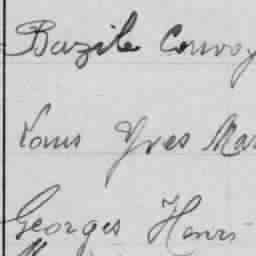 Bazile Convoy
Louis Yves Mar
Georges Henri